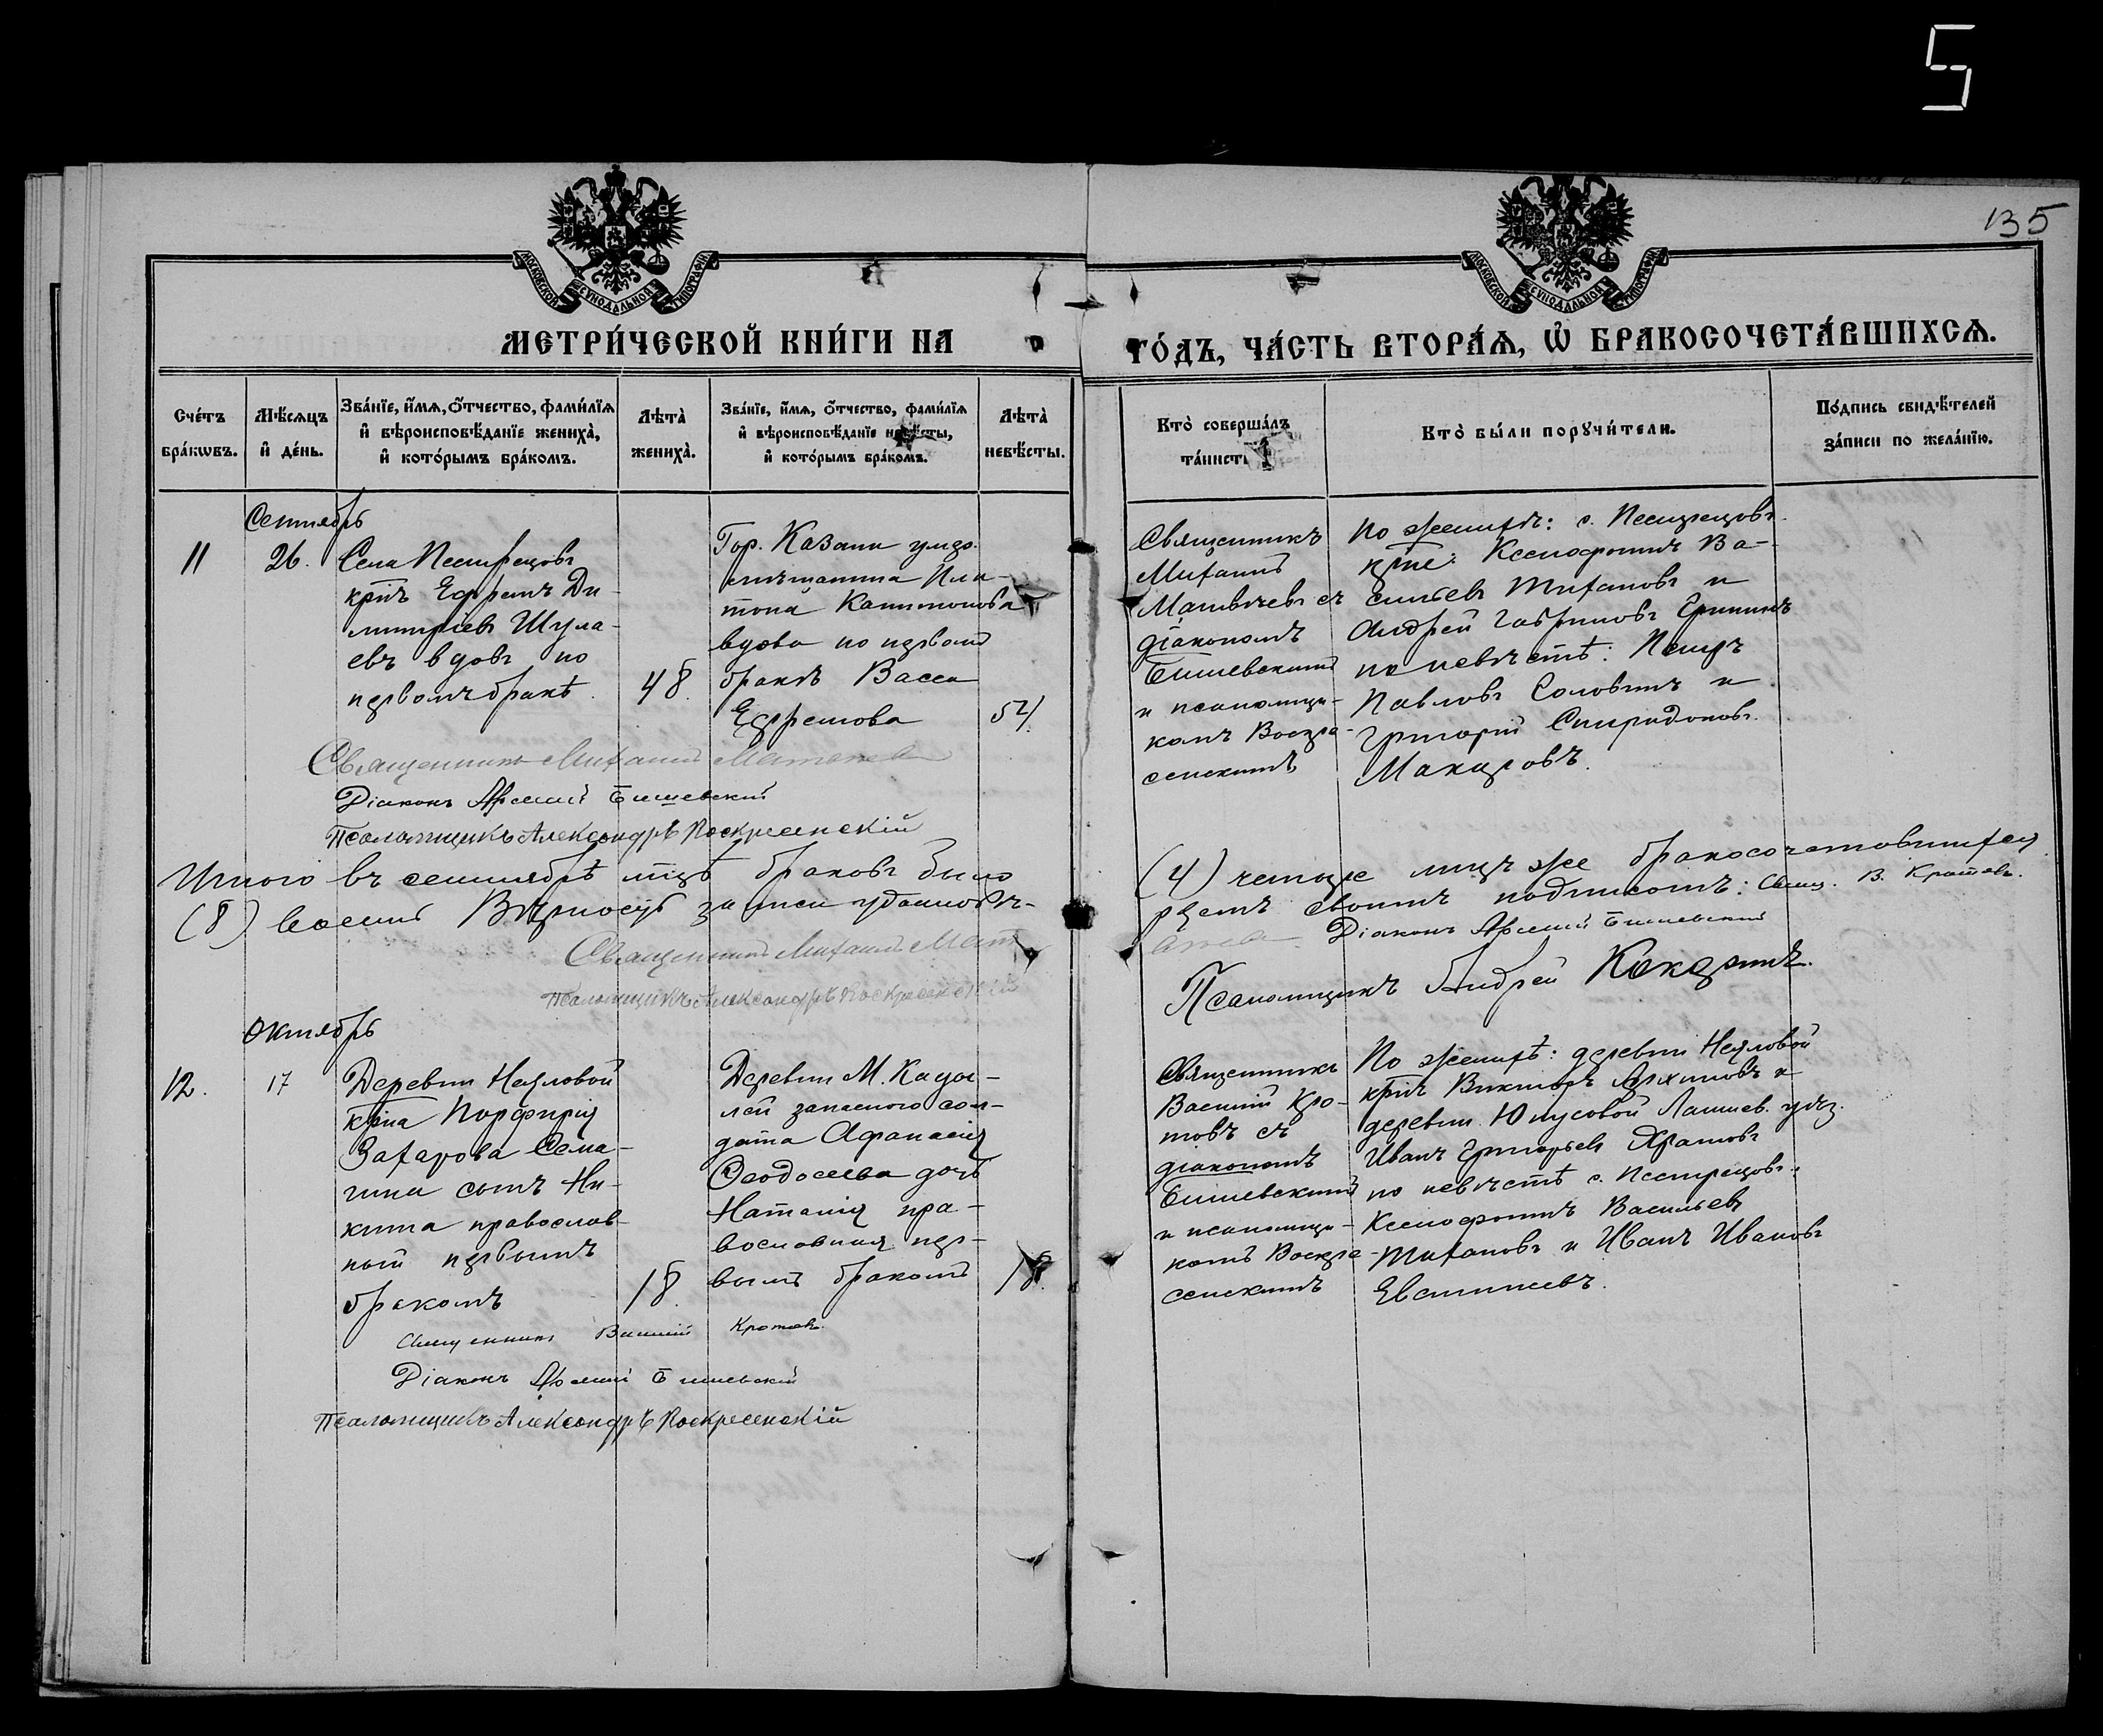 5
135
МОСКОВСКОЙ СѴНОДАЛЬНОЙ ТИПОГРАФІИ
МОСКОВСКОЙ СѴНОДАЛЬНОЙ ТИПОГРАФІИ
МЕТРИ́ЧЕСКОЙ КНИ́ГИ НА
ГО́ДЪ, ЧА́СТЬ ВТОРА́Ѧ, Ѽ БРАКОСОЧЕТА́ВШИХСѦ.
Сче́тъ
бра́кѡвъ.
Мѣ́сяцъ
и҆ де́нь.
Зва́нїе, и҆́мя, ѻ҆́тчество, фами́лїя
и҆ вѣроисповѣ́данїе жениха̀,
и҆ кото́рымъ бра́комъ.
Лѣта̀
жениха̀.
Зва́нїе, и҆́мя, ѻ҆́тчество, фами́лїя
и҆ вѣроисповѣ́данїе невѣ́сты,
и҆ кото́рымъ бра́комъ.
Лѣта̀
невѣ́сты.
Кто̀ соверша́лъ
та́инст
Кто̀ бы́ли порꙋчи́тели.
По́дпись свидѣ́телей
за́писи по жела́нїю.
Сентябрь
11
26.
Села Пестрецовъ
кр̅нъ Ефремъ Ди-
митріевъ Шула-
евъ вдовъ по
первомъ бракѣ.
48.
Гор. Казани умер.
мѣщанина Пла-
тона Капитонова
вдова по первом
бракѣ Васса
Ефремова
54.
Священникъ
Михаилъ
Матвѣевъ съ
діакономъ
Бишевскимъ
и псаломщи-
комъ Воскре-
сенскимъ
По женихѣ: с. Пестрецовъ
кр̅не: Ксенофонтъ Ва-
сильевъ Тихановъ и
Андрей Гавриловъ
по невѣстѣ: Петръ
Павловъ Соловьинъ и
Григорій Спиридоновъ
Макаровъ.
Священникъ Михаилъ Матвеевъ
Діаконъ Арсеній Бишевскій
Псаломщикъ Александръ Воскресенскій
Итого въ сентябрѣ мцѣ браковъ было
(4) четыре лицъ же бракосочетовшихся
(8) восемь Вѣрность записи удостовѣ-
ряемъ своимъ подписомъ: Свящ. В. Кротовъ.
Священникъ Михаилъ Мат
Діаконъ Арсеній Бишевскій
Псаломщикъ Александръ Воскресенскій
Псаломщикъ Андрей
Октябрь
12.
17
Деревни Неяловой
кр̅на Порфирія
Захарова Сема-
гина сынъ Ни-
кита православ-
ный первымъ
бракомъ
18.
Деревни М. Кады-
лей запасного сол-
дата Афанасія
Ѳеодосеева дочь
Наталія пра-
вославная пер-
вымъ бракомъ
18.
Священникъ
Василій Кро-
товъ съ
діакономъ
Бишевскимъ
и псаломщи-
комъ Воскре-
сенскимъ
По женихѣ: деревни Неяловой
кр̅нъ Викторъ Архиповъ и
деревни Юнусовой Лаишев. уѣз.
Иванъ Григорьевъ Храмовъ
по невѣстѣ с. Пестрецовъ
Ксенофонтъ Васильевъ
Тихановъ и Иванъ Ивановъ
Евстинеевъ.
Священникъ Василій Кротовъ.
Діаконъ Арсеній Бишевскій
Псаломщикъ Александръ Воскресенскій